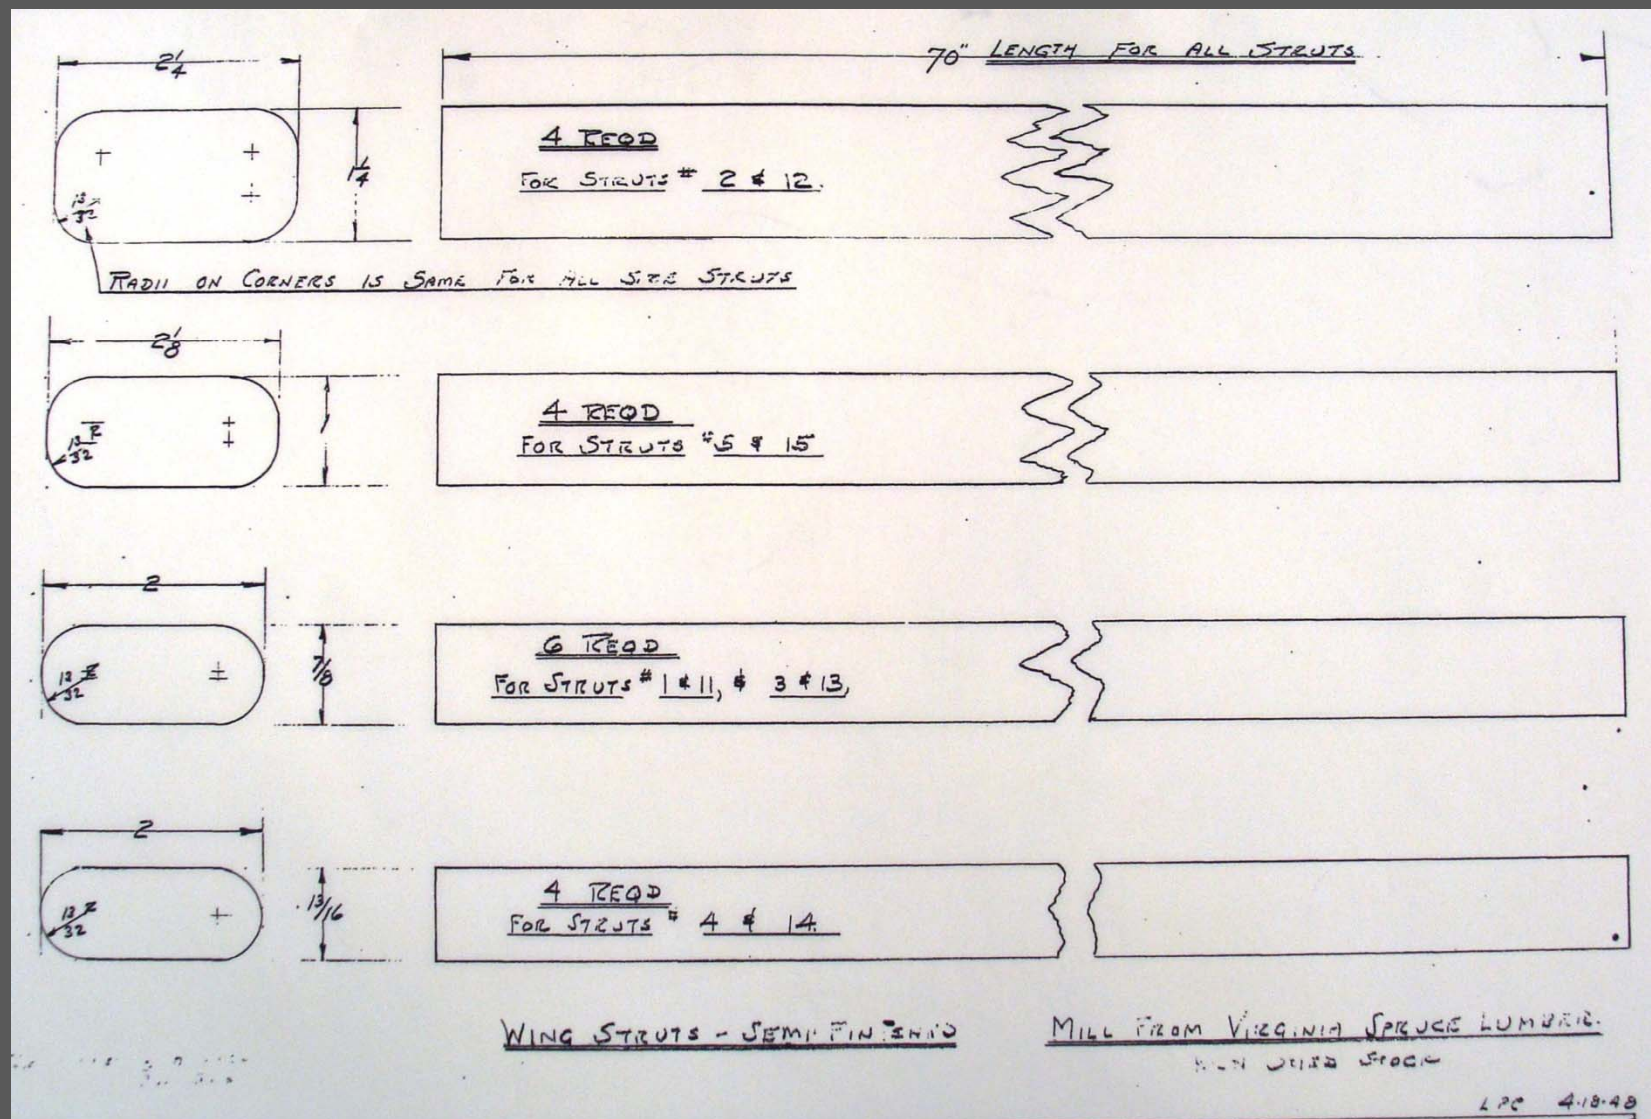 2 1/4
70" LENGTH FOR ALL STRUTS
1 1/4
13/32
4 REQD
FOR STRUTS # 2 & 12.
RADII ON CORNERS IS SAME FOR ALL SIZE STRUTS
2 1/8
1
13/32 R
4 REQD
FOR STRUTS #5 & 15
2
7/8
13/32 R
6 REQD
FOR STRUTS # 1 & 11, & 3 & 13,
2
13/16
13/32 R
4 REQD
FOR STRUTS # 4 & 14.
WING STRUTS - SEMI FINISHED
MILL FROM VIRGINIA SPRUCE LUMBER.
STOCK
LPC 4-18-48